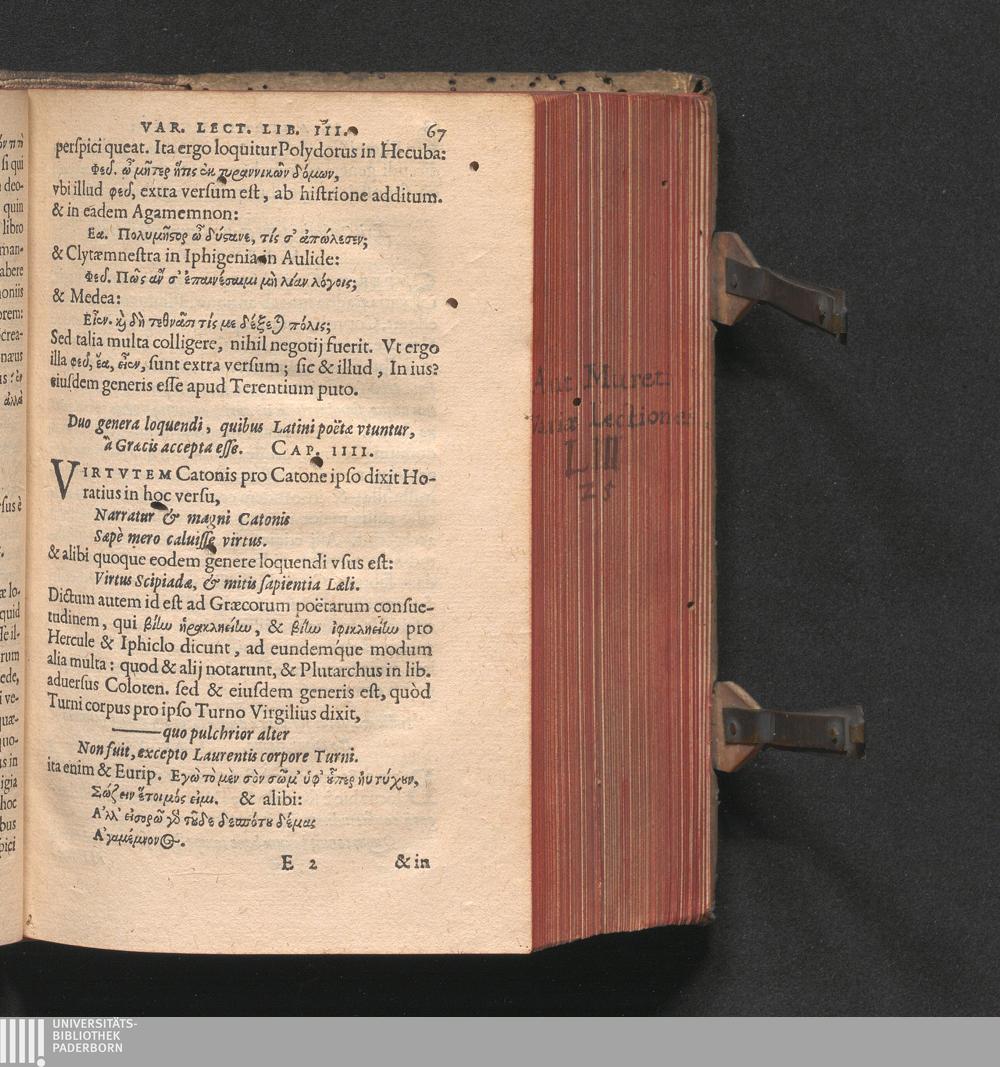 VAR. LECT. LIB. III. 67
perſpici queat. Ita ergo loquitur Polydorus in Hecuba:
Φεῦ. ὦ μῆτερ ἥτις ἐκ τυραννικῶν δόμων,
vbi illud φεῦ, extra verſum eſt, ab hiſtrione additum.
& in eadem Agamemnon:
Εα. Πολυμῆςορ ὦ δύςηνε, τίς σ' ἀπώλεσεν;
& Clytæmneſtra in Iphigenia in Aulide:
Φεῦ. Πῶς ἄν σ' ἐπαινέσαιμι μὴ λίαν λόγοις;
& Medea:
Εἶεν. ϗ δὴ τεθνᾶσι τίς με δέξεται πόλις;
Sed talia multa colligere, nihil negotij fuerit. Vt ergo
illa φεῦ, ἔα, εἶεν, ſunt extra verſum; ſic & illud, In ius?
eiuſdem generis eſſe apud Terentium puto.
Duo genera loquendi, quibus Latini poëtæ vtuntur,
à Græcis accepta eſſe. CAP. IIII.
VIRTVTEM Catonis pro Catone ipſo dixit Ho-
ratius in hoc verſu,
Narratur & magni Catonis
Sæpè mero caluiſſe virtus.
& alibi quoque eodem genere loquendi vſus eſt:
Virtus Scipiadæ, & mitis ſapientia Læli.
Dictum autem id eſt ad Græcorum poëtarum conſue-
tudinem, qui βίην ἡρακληείην, & βίην ἰφικληείην pro
Hercule & Iphiclo dicunt, ad eundemq́ue modum
alia multa: quod & alij notarunt, & Plutarchus in lib.
aduerſus Coloten. ſed & eiuſdem generis eſt, quòd
Turni corpus pro ipſo Turno Virgilius dixit,
—— quo pulchrior alter
Non fuit, excepto Laurentis corpore Turni.
ita enim & Eurip. Εγὼ τὸ μὲν σὸν σῶμ' ὑφ' οὗπερ ηὐτύχουν,
Σώζειν ἕτοιμός εἰμι. & alibi:
Α'λλ' εἰσορῶ γὸ τοῦδε δεσπότου δέμας
Α'γαμέμνονος.
E 2 & in
Ant. Muret.
Variæ Lectiones
LIII
25
UNIVERSITÄTS-
BIBLIOTHEK
PADERBORN